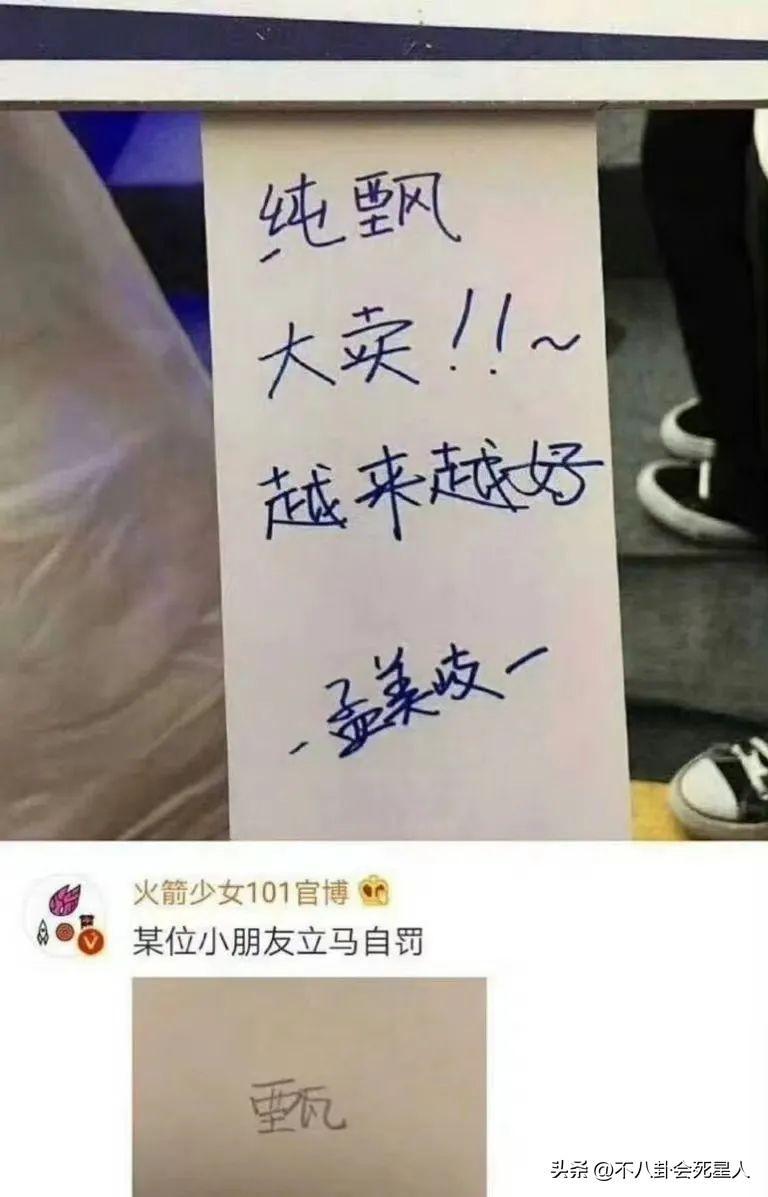 纯⿰垔风
大卖!!~
越来越好
孟美岐
火箭少女101官博
某位小朋友立马自罚
甄
头条 @不八卦会死星人